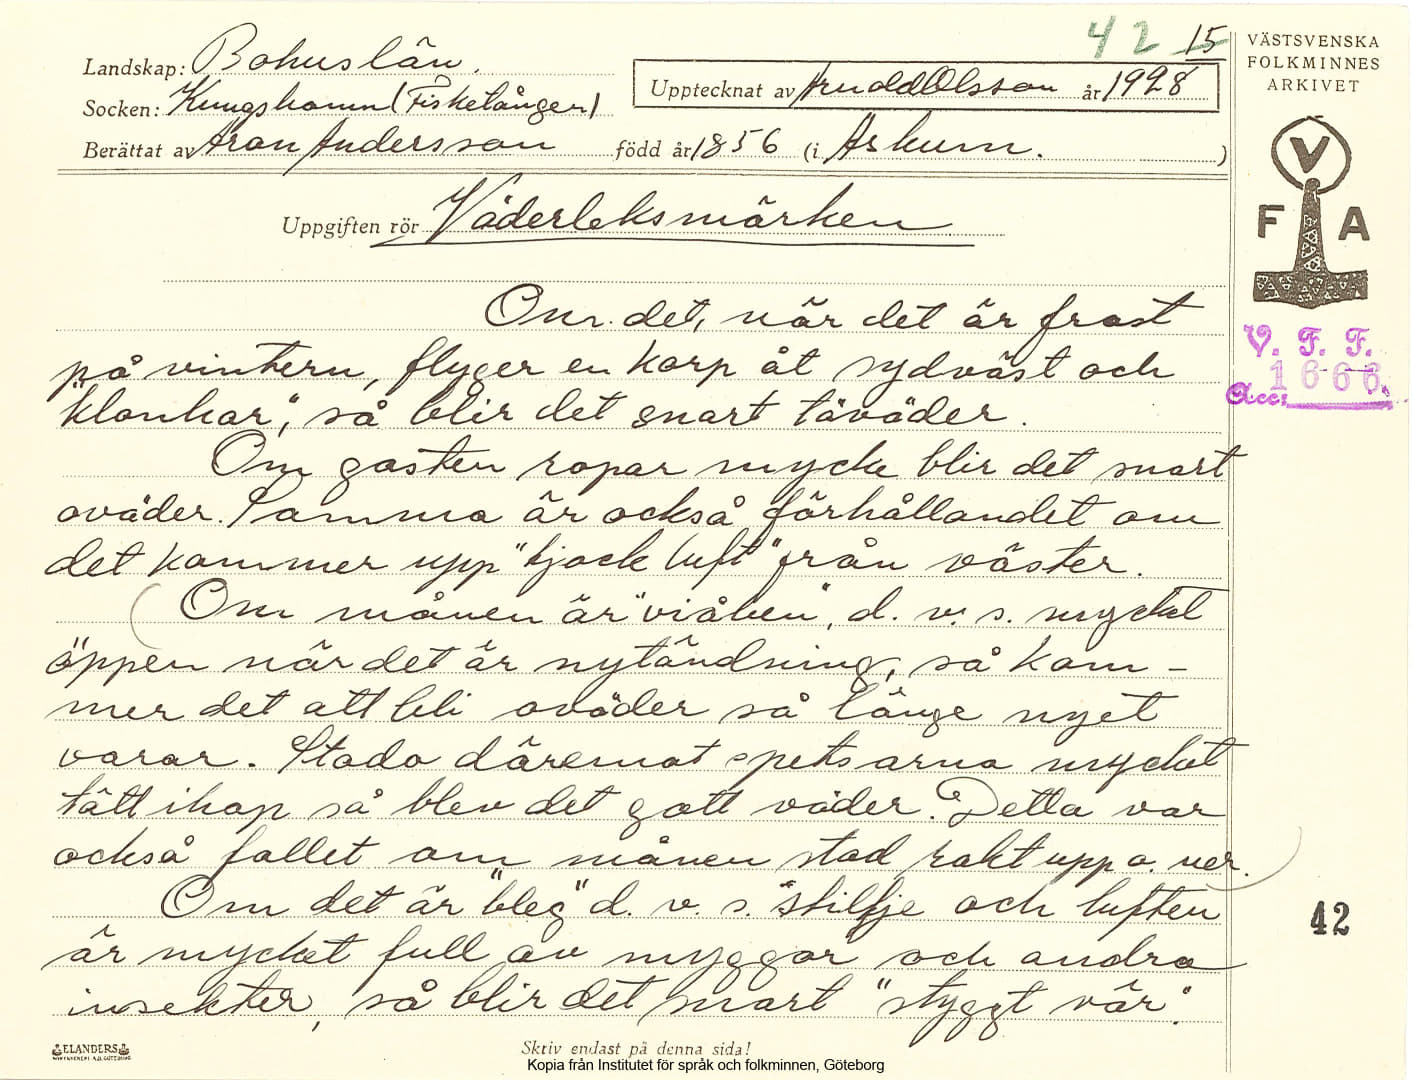 42 15
Landskap: Bohuslän.
Socken: Kungshamn (Fisketången)
Berättat av Aron Andersson född år 1856 (i Askum. )
Upptecknat av Arnold Olsson år 1928
VÄSTSVENSKA
FOLKMINNES
ARKIVET
V
F A
V. F. F.
1666
Acc:
Uppgiften rör Väderleksmärken
Om det, när det är frost
på vintern, flyger en korp åt sydväst och
"klonkar", så blir det snart töväder.
Om gasten ropar mycke blir det snart
oväder. Samma är också förhållandet om
det kommer upp "tjock luft" från väster.
(Om månen är "viåben", d. v. s. mycket
öppen när det är nytändning, så kom-
mer det att bli oväder så länge nyet
varar. Stodo däremot spetsarna mycket
tätt ihop så blev det gott väder. Detta var
också fallet om månen stod rakt upp o. ner.)
Om det är "bleg" d. v. s. stiltje och luften
är mycket full av myggor och andra
insekter, så blir det snart "styggt vär".
42
ELANDERS
Skriv endast på denna sida!
Kopia från Institutet för språk och folkminnen, Göteborg